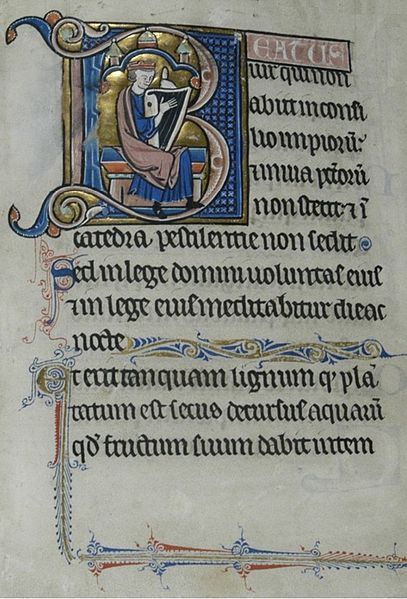 BEATUS
uir qui non
abiit in consi
lio impiorū ⁊
in uia pctorū
non stetit ⁊ ī
catedra pestilentie non sedit
Sed in lege domini uoluntas eius
⁊ in lege eius meditabitur die ac
nocte
Et erit tanquam lignum qd plā
tatum est secus decursus aquarū
qd̄ fructum suum dabit in tem